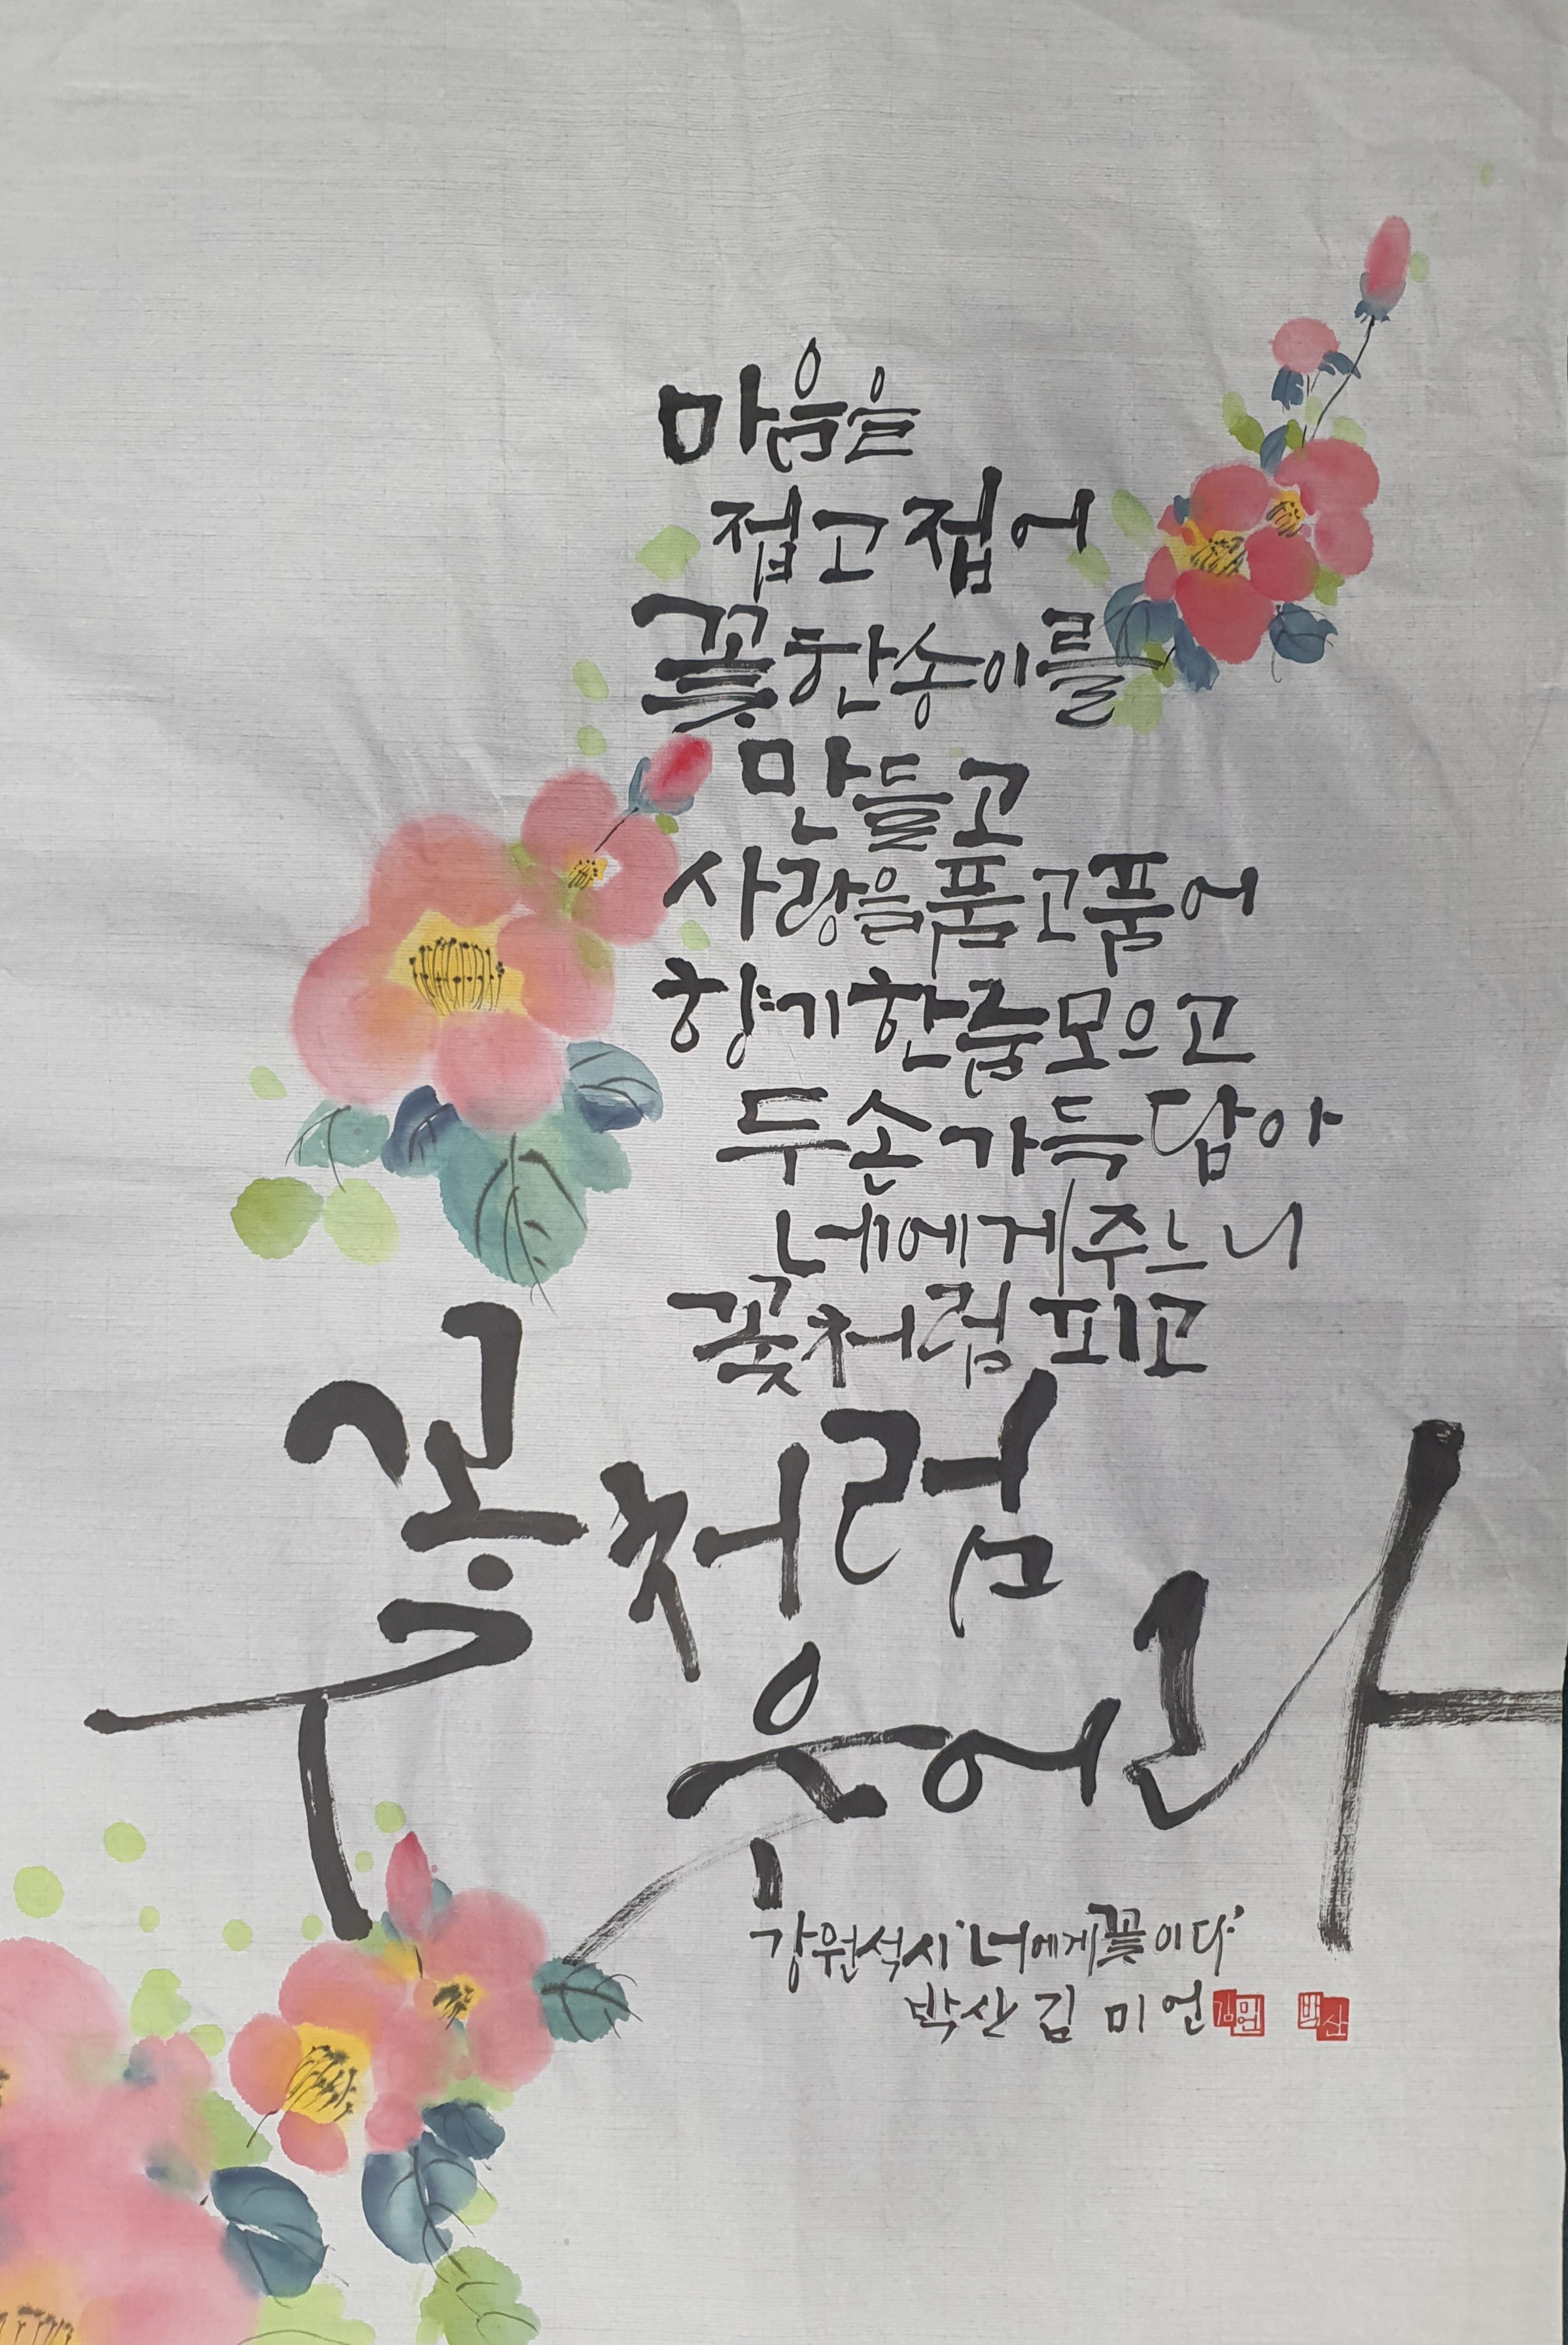 마음을
접고 접어
꽃 한 송이를
만들고
사랑을 품고 품어
향기 한 줌 모으고
두 손 가득 담아
네에게 주느니
꽃처럼 피고
꽃처럼
웃어라
강원석 시 "너에게 꽃이다"
박산 김미언
김미언 박산